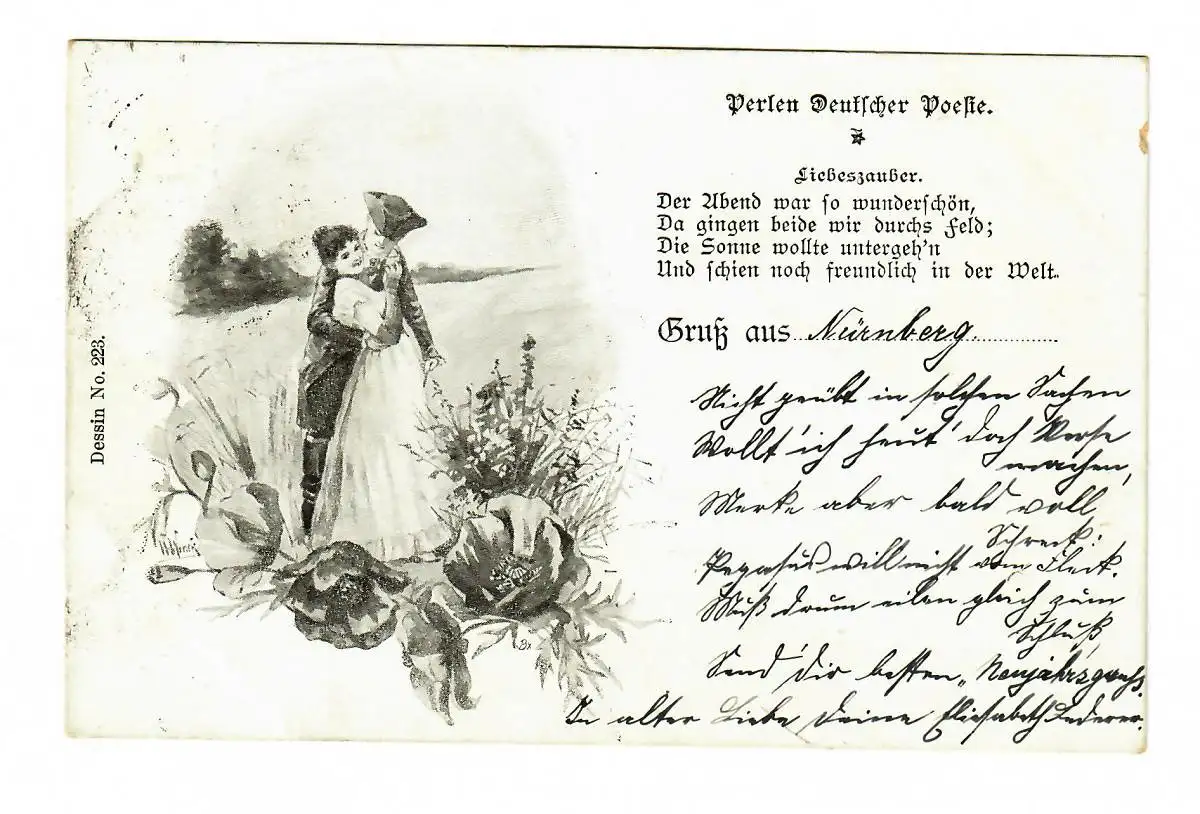 Perlen Deutscher Poesie.
Liebeszauber.
Der Abend war so wunderschön,
Da gingen beide wir durchs Feld;
Die Sonne wollte untergeh'n
Und schien noch freundlich in der Welt.
Gruß aus Nürnberg.
Nicht geübt in solchen Sachen
Wollt' ich heut' doch Verse
machen,
Merke aber bald voll
Schreck:
Pegasus will nicht vom Fleck.
Muß drum eilen gleich zum
Schluß,
Send' dir besten „Neujahrsgruss.
In alter Liebe Deine Elisabeth Lederer.
Dessin No. 223.